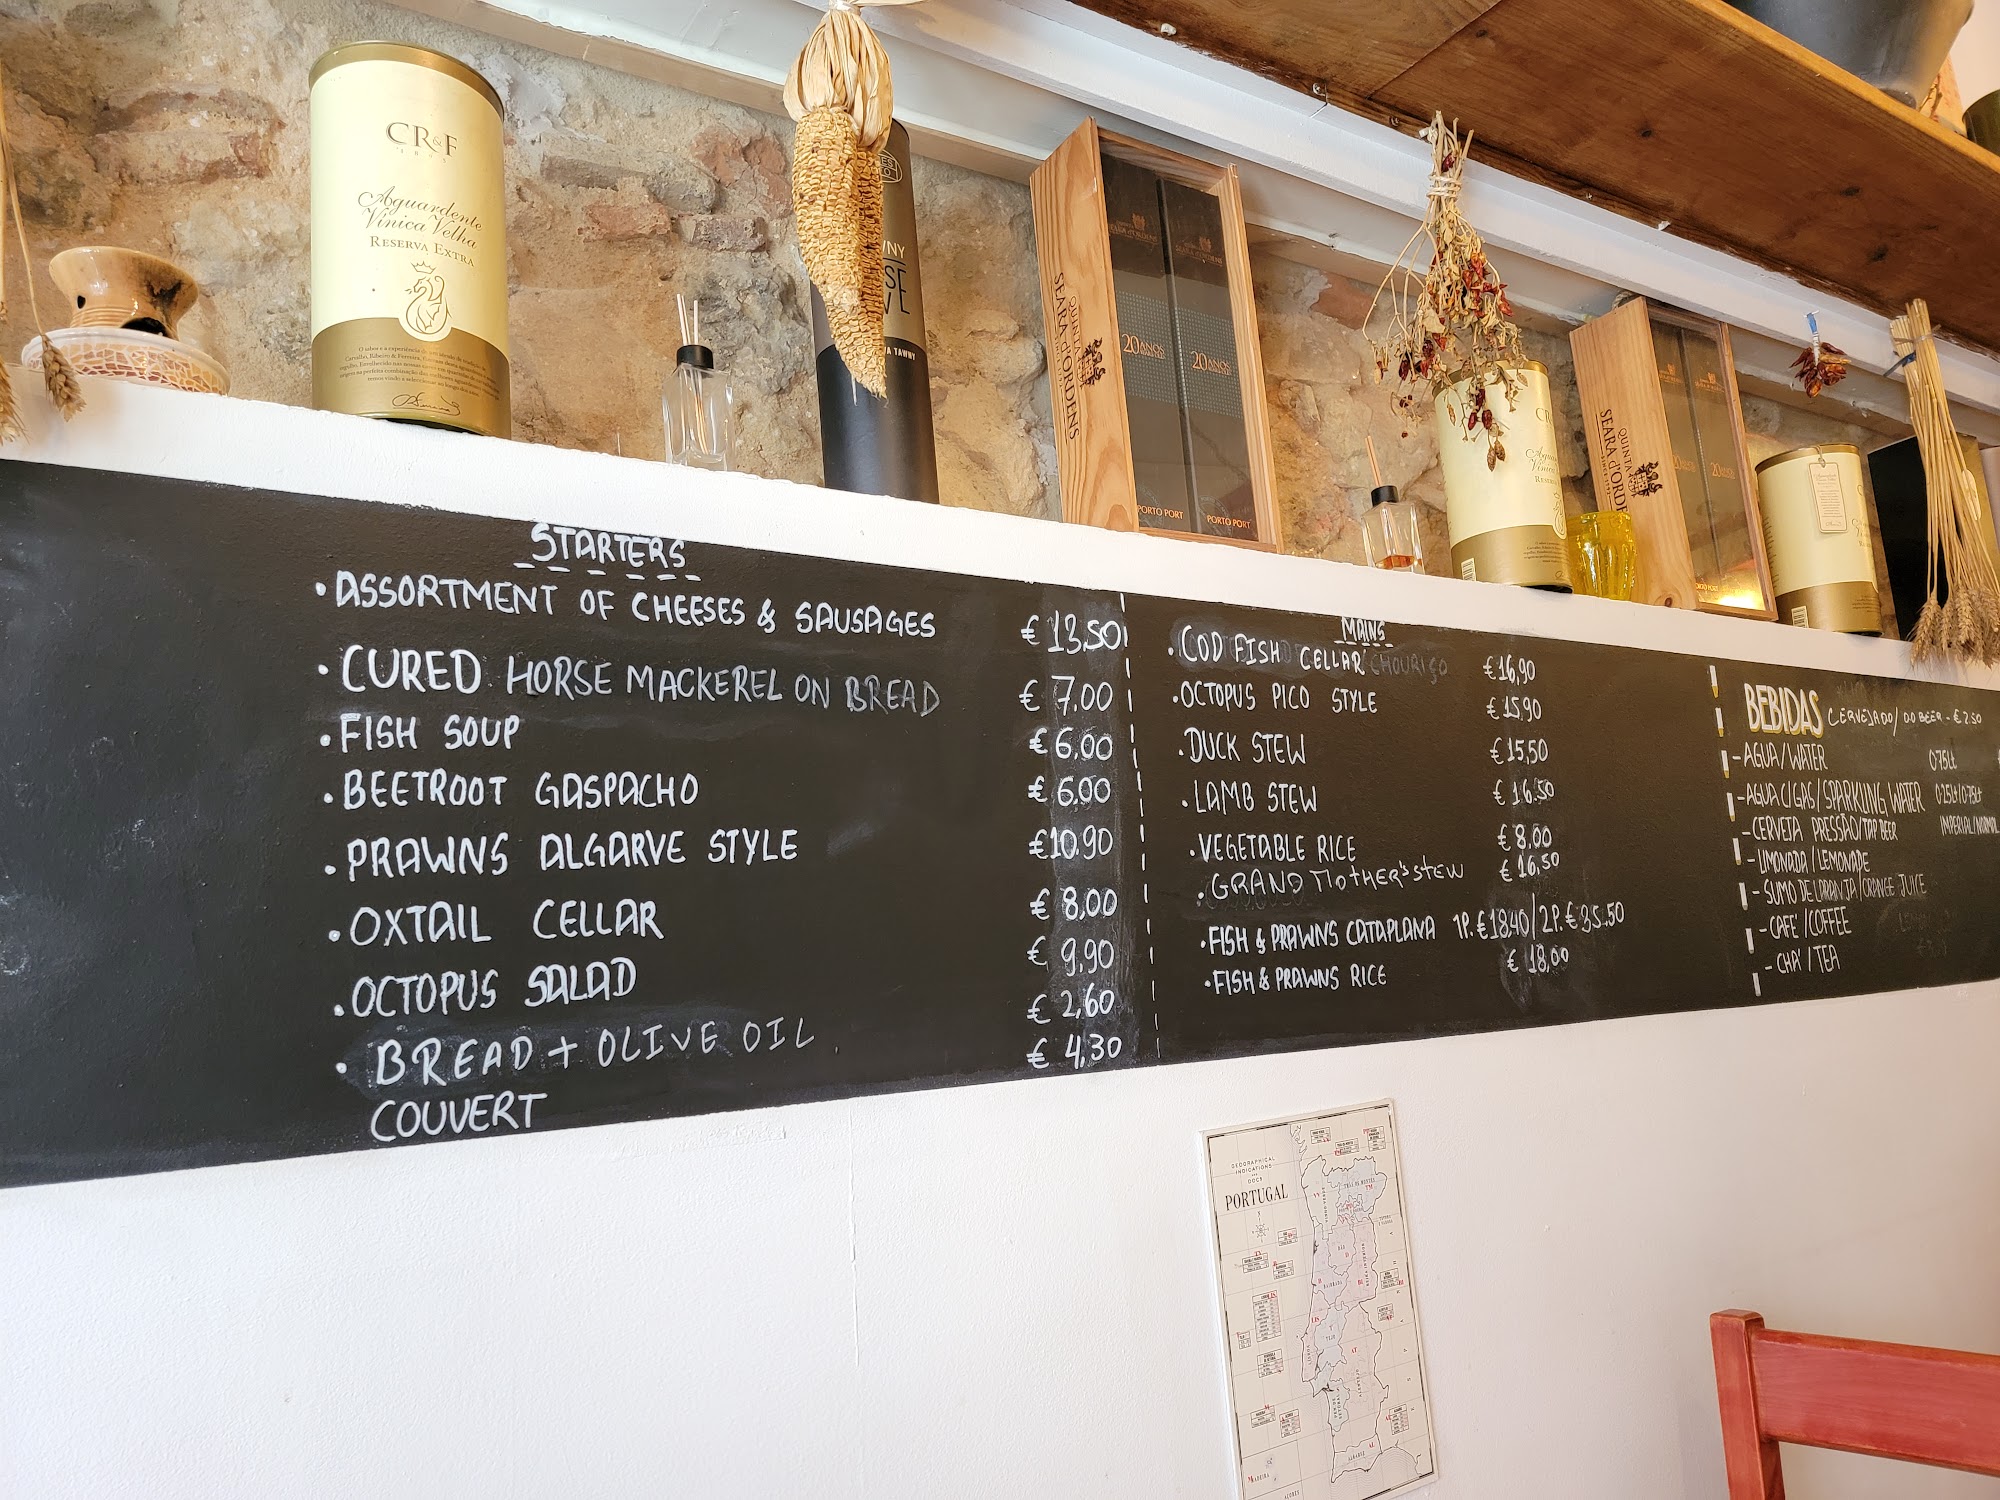 CR&F
Aguardente
Vínica Velha
RESERVA EXTRA
TAWNY
QUINTA
SEARA d'ORDENS
20 ANOS
20 ANOS
PORTO PORT
PORTO PORT
QUINTA
SEARA d'ORDENS
20 ANOS
STARTERS
• ASSORTMENT OF CHEESES & SAUSAGES € 13,50
• CURED HORSE MACKEREL ON BREAD € 7.00
• FISH SOUP € 6,00
• BEETROOT GASPACHO € 6,00
• PRAWNS ALGARVE STYLE €10,90
• OXTAIL CELLAR € 8,00
• OCTOPUS SALAD € 9,90
• BREAD + OLIVE OIL € 2,60
COUVERT € 4,30
MAINS
• COD FISH CELLAR € 16,90
• OCTOPUS PICO STYLE € 15,90
• DUCK STEW € 15,50
• LAMB STEW € 16.50
• VEGETABLE RICE € 8,00
• GRAND MOTHER'S STEW € 16,50
• FISH & PRAWNS CATAPLANA 1P. € 18.40/2P. € 35.50
• FISH & PRAWNS RICE € 18,00
BEBIDAS CERVEJADO/DO BEER - € 2.50
- AGUA/WATER 0.75Lt
- AGUA C/GAS/SPARKLING WATER 0.25Lt/0.75Lt
- CERVEJA PRESSÃO/TAP BEER IMPERIAL/NORMAL
- LIMONADA/LEMONADE
- SUMO DE LARANJA/ORANGE JUICE
- CAFE'/COFFEE
- CHA'/TEA
GEOGRAPHICAL
INDICATIONS
DOCS
PORTUGAL